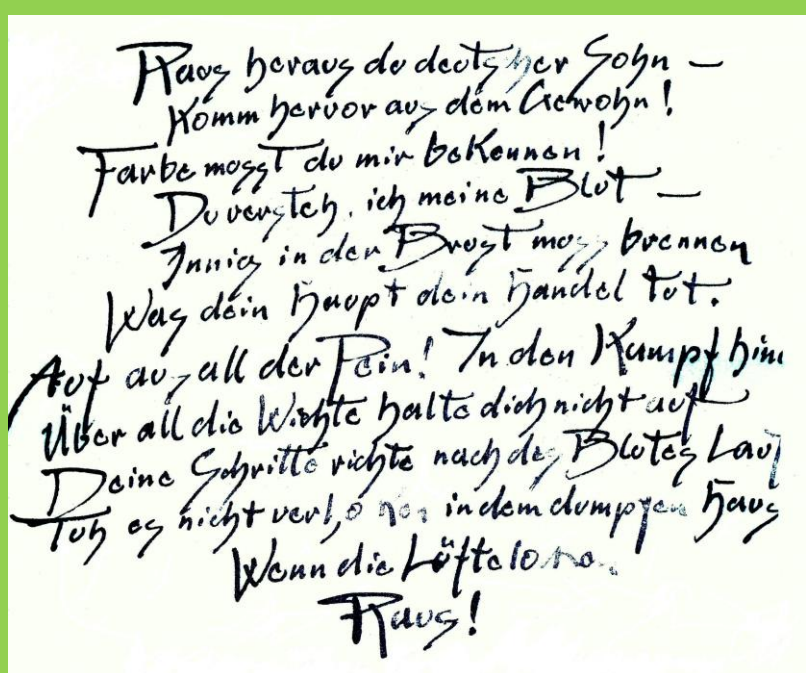 Raus heraus du deutscher Sohn –
Komm hervor aus dem Gewohn!
Farbe musst du mir bekennen!
Du versteh, ich meine Blut –
Innig in der Brust muss brennen
Was dein Haupt dein Handel tut.
Auf aus all der Pein! In den Kampf
Über all die Wichte halte dich nicht auf
Deine Schritte richte nach des Blutes Lauf
Tuh es nicht in dem dumpfen Haus
Wenn die Lüfte
Raus!